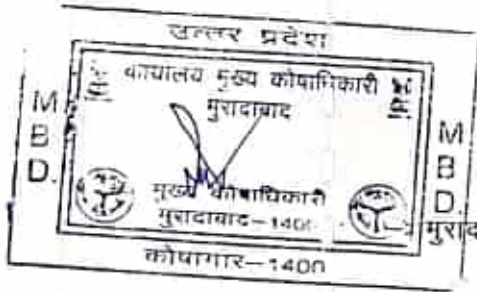 उत्तर प्रदेश
कार्यालय मुख्य कोषाधिकारी
मुरादाबाद
M
B
D.
M
B
D.
मुख्य कोषाधिकारी
मुरादाबाद-1400
मुराद
कोषागार-1400